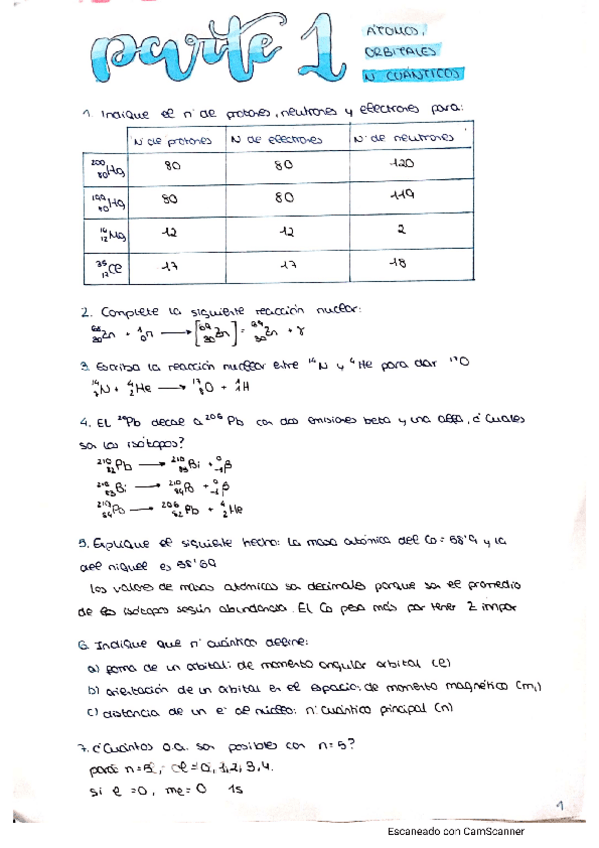 parte 1
ÁTOMOS,
ORBITALES
N CUÁNTICOS
1. Indique el nº de protones, neutrones y electrones para:
Nº de protones N de electrones Nº de neutrones
200 80 Hg 80 80 120
199 80 Hg 80 80 119
14 12 Mg 12 12 2
35 17 Cl 17 17 18
2. Complete la siguiente reacción nuclear:
68 30 Zn + 1 0 n → [69 30 Zn] = 69 30 Zn + γ
3. Escriba la reacción nuclear entre 14N y 4He para dar 17O
14 7 N + 4 2 He → 17 8 O + 1 1 H
4. El 210Pb decae a 206Pb con dos emisiones beta y una alfa, ¿Cuales
son los isótopos?
210 82 Pb → 210 83 Bi + 0 -1 β
210 83 Bi → 210 84 Po + 0 -1 β
210 84 Po → 206 82 Pb + 4 2 He
5. Explique el siguiente hecho: la masa atómica del Co = 58'9 y la
del niquel es 58'69
Los valores de masas atómicas son decimales porque son el promedio
de los isótopos según abundancia. El Co pesa más por tener Z impar
6. Indique que nº cuántico define:
a) forma de un orbital: de momento angular orbital (l)
b) orientación de un orbital en el espacio: de momento magnético (ml)
c) distancia de un e- al núcleo: nº cuántico principal (n)
7. ¿Cuántos o.a. son posibles con n=5?
para n=5, l=0,1,2,3,4.
si l=0, ml=0 1s
1
Escaneado con CamScanner